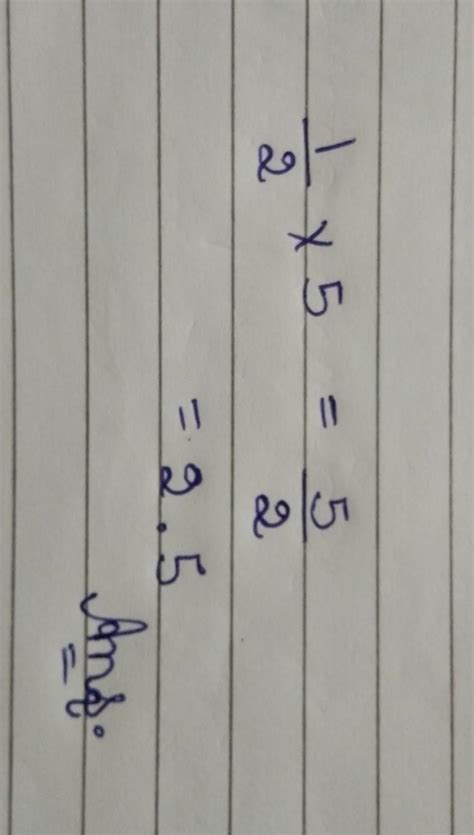 1/2 × 5 = 5/2
= 2.5
Ans.